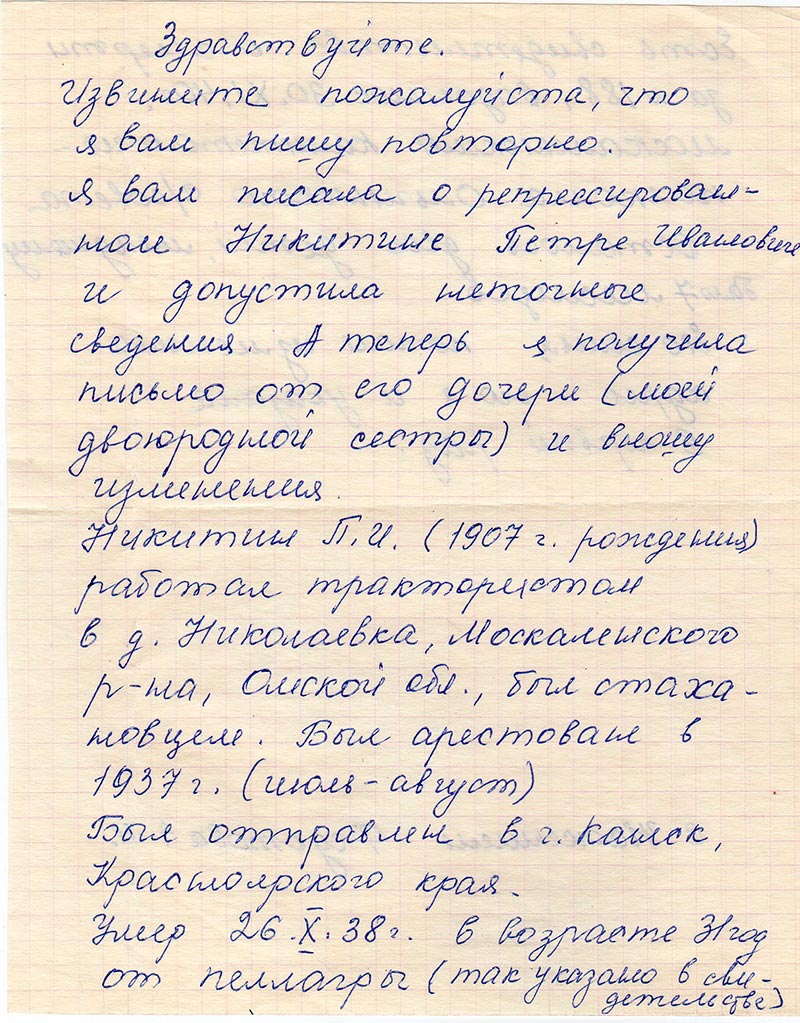 Здравствуйте.
Извините пожалуйста, что
я вам пишу повторно.
Я вам писала о репрессирован-
ном Никитине Петре Ивановиче
и допустила неточные
сведения. А теперь я получила
письмо от его дочери (моей
двоюродной сестры) и вношу
изменения.
Никитин П.И. (1907 г. рождения)
работал трактористом
в д. Николаевка, Москаленского
р-на, Омской обл., был стаха-
новцем. Был арестован в
1937 г. (июль-август)
Был отправлен в г. Канск,
Красноярского края.
Умер 26.X.38г. в возрасте 31 год
от пеллагры (так указано в сви-
детельстве)